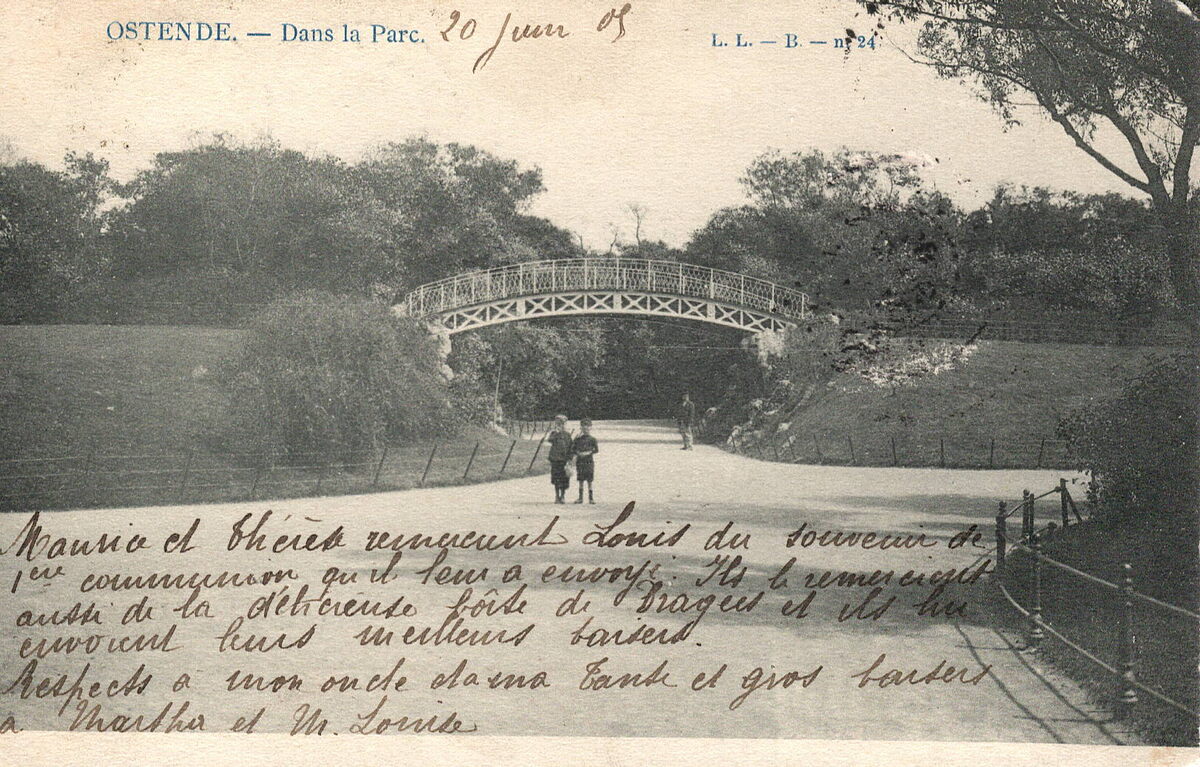 OSTENDE. — Dans la Parc. 20 Juin 05
L. L. — B. — nº 24
Maurice et Thérèse remercient Louis du souvenir de
1ère communion qu'il leur a envoyé. Ils le remercient
aussi de la délicieuse bôite de Dragées et ils lui
envoient leurs meilleurs baisers.
Respects à mon oncle et a ma Tante et gros baisers
a Martha et M. Louise